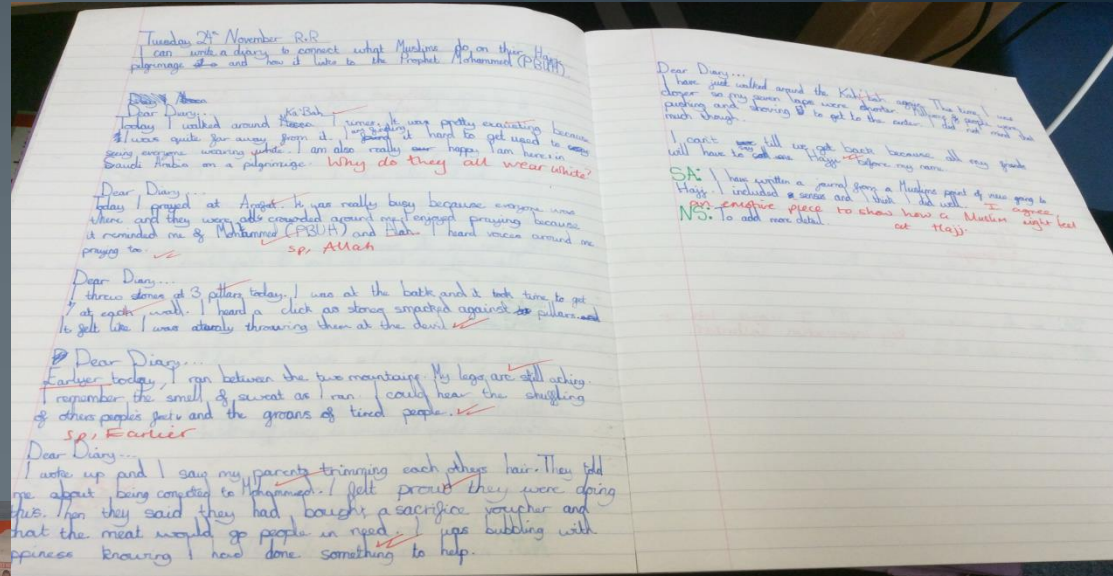 Tuesday 24th November R.R
I can write a diary to connect what Muslims do on their Hajj
pilgrimage and how it links to the Prophet Mohammed (PBUH).
Dear Diary...
Ka'Bah
Today I walked around it was pretty exausting because
I was quite far away from it. I am finding it hard to get used to
seeing everyone wearing white. I am also really happy I am here in
Saudi Arabia on a pilgrimage. Why do they all wear white?
Dear Diary...
Today I prayed at It was really busy because everyone was
there and they were all crowded around me. I enjoyed praying because
it reminded me of Mohammed (PBUH) and Elah. I heard voices around me
praying too.
sp, Allah
Dear Diary...
I threw stones at 3 pillars today. I was at the back and it took time to get
at each wall. I heard a click as stones smacked against pillars.
It felt like I was throwing them at the devil.
Dear Diary...
Earlyer today, I ran between the two mountains. My legs are still aching.
I remember the smell of sweat as I ran. I could hear the shuffling
of others people's feet and the groans of tired people.
sp, Earlier
Dear Diary...
I woke up and I saw my parents trimming each others hair. They told
me about being conected to Mohammed. I felt proud they were doing
this. Then they said they had bought a sacrifice voucher and
that the meat would go people in need. I was bubbling with
ppiness knowing I had done something to help.
Dear Diary...
I have just walked around the Ka'bah again. This time I was
closer so my seven laps were shorter. Millions of people were
pushing and shoving to get to the I did not
much though.
I can't till we get back because all my friends
will have to Hajji before my name.
SA: I have written a journal from a Muslims point of view going to
Hajj. I included senses and I think I did well. I agree,
an emotive piece to show how a Muslim might feel
at Hajj.
NS: To add more detail.